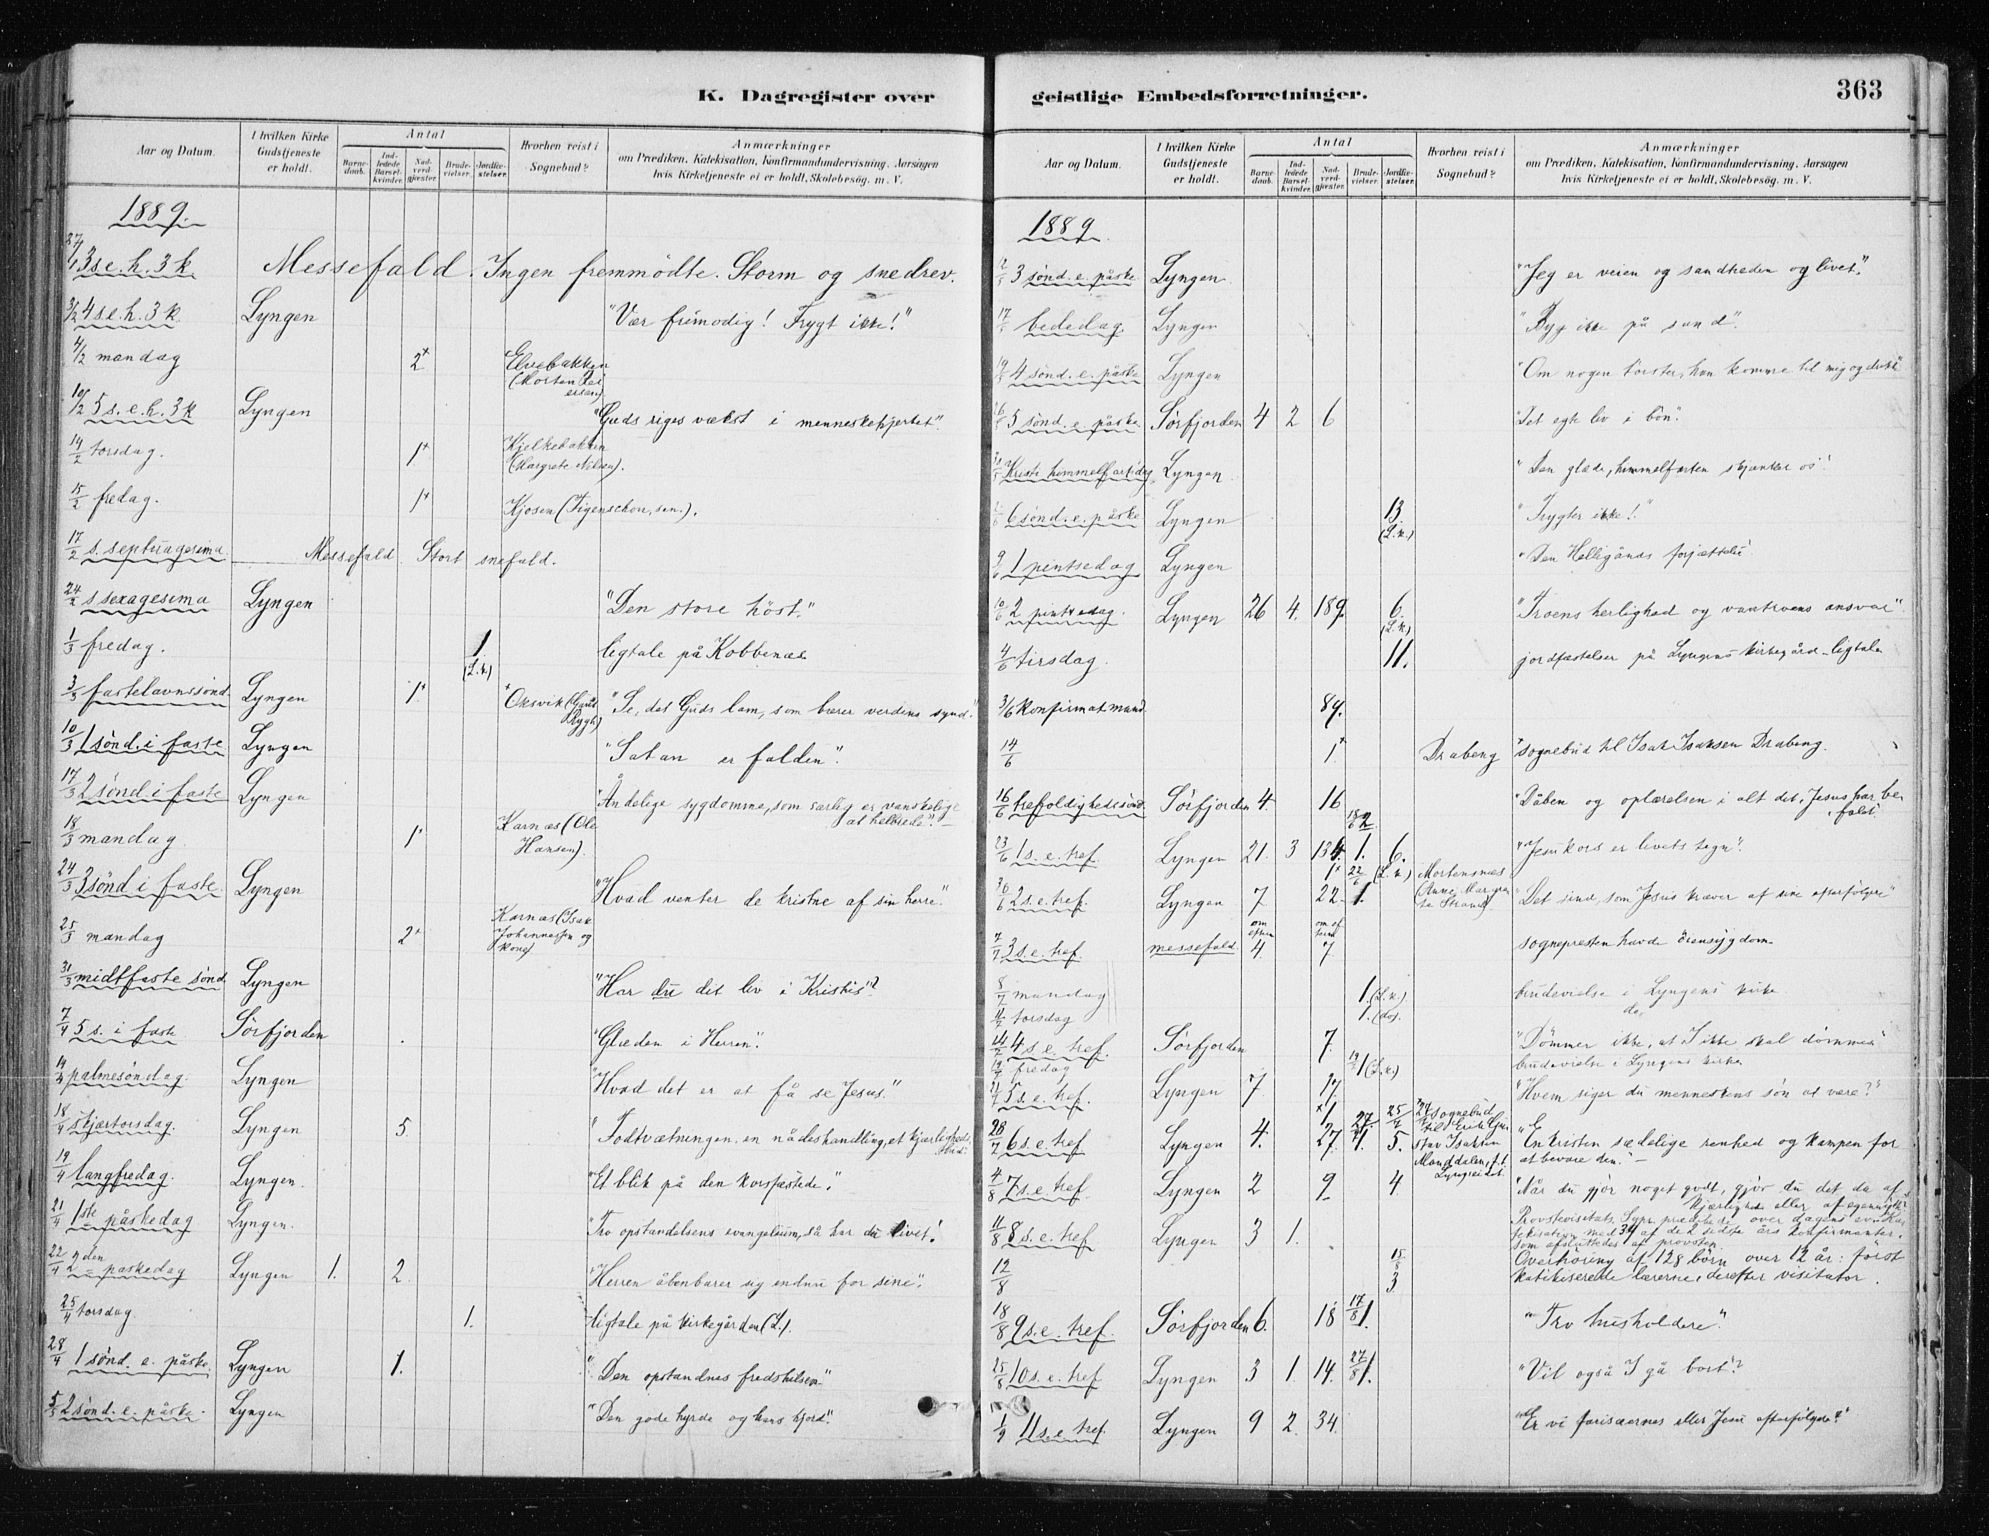 K. Dagregister over
Aar og Datum.
I hvilken Kirke Gudstjeneste er holdt.
Antal
Barnedaab.
Indledede Barselkvinder.
Nadverdgjæster.
Brudevielser.
Jordfæstelser.
Hvorhen reist i Sognebud?
Anmærkninger
om Prædiken, Katekisation, Konfirmandundervisning, Aarsagen
hvis Kirketjeneste ei er holdt, Skolebesøg. m. V.
1889.
27/1 3 s.e.h. 3 k. Messefald. Ingen fremmödte. Storm og snedrev.
3/2 4 s.e.h. 3 k. Lyngen "Vær frimodig! Frygt ikke!"
4/2 mandag 2+ Elvebakken (Morten
10/2 5 s.e.h. 3 k Lyngen "Guds riges vækst i menneskehjertet"
14/2 torsdag. 1+ Kjelkebakken (Margrete Nilsen).
15/2 fredag. 1+ Kjosen (Figenschou, sen.).
17/2 s. septuagesima Messefald Stort snefald.
24/2 s sexagesima Lyngen "Den store höst."
1/3 fredag. 1. (L.k.) ligtale på Kobbenæs
3/3 fastelavnssönd. Lyngen 1+ + Oksvik "Se, det Guds lam, som bærer verdens synd."
10/3 1 sönd. i faste Lyngen "Satan er falden".
17/3 2 sönd. i faste Lyngen "Åndelige sygdomme, som særlig er vanskelige at helbrede." –
18/3 mandag 1+ Karnæs (Ole Hansen).
24/3 3 sönd i faste. Lyngen "Hvad venter de kristne af sin herre."
25/3 mandag 2+ Karnæs (Isak Johannessen og kone)
31/3 midtfaste sönd Lyngen "Har du det liv i Kristus"?
7/4 5 s. i faste Sörfjorden "Glæden i Herren".
14/4 palmesöndag. Lyngen "Hvad det er at få se Jesus."
18/4 skjærtorsdag. Lyngen 5. "Fodtvætningen en nådeshandling, et kjærligheds
19/4 langfredag. Lyngen. "Et blik på den korsfæstede".
21/4 1ste påskedag Lyngen. "Tro opstandelsens evangelium, så har du livet!
22/4 2den påskedag Lyngen 1. 2. "Herren åbenbarer sig endnu for sine".
25/4 torsdag. 1. ligtale på kirkegården (L.).
28/4 1 sönd. e. påske. Lyngen 1. "Den opstandnes fredshilsen"
5/5 2 sönd. e. påske. Lyngen "Den gode hyrde og hans hjord".
geistlige Embedsforretninger.
363
Aar og Datum.
I hvilken Kirke Gudstjeneste er holdt.
Antal
Barnedaab.
Indledede Barselkvinder.
Nadverdgjæster.
Brudevielser.
Jordfæstelser.
Hvorhen reist i Sognebud?
Anmærkninger
om Prædiken, Katekisation, Konfirmandundervisning, Aarsagen
hvis Kirketjeneste ei er holdt, Skolebesøg. m. V.
1889.
12/5 3 sönd. e. påske Lyngen "Jeg er veien og sandheden og livet".
17/5 bededag. Lyngen "Byg ikke på sand".
19/5 4 sönd. e. påske Lyngen "Om nogen törster, han komme til mig og drikke"
26/5 5 sönd. e. påske. Sörfjorden 4 2 6 "Det egte liv i bön".
30/5 Kristi himmelfartsdag Lyngen. "Den glæde, himmelfarten skjænker os".
2/6 6 sönd. e. påske Lyngen 13 (L.k.) "Frygter ikke!"
9/6 1 pintsedag Lyngen "Den Helligånds forjættelse"
10/6 2 pintsedag. Lyngen 26 4. 189. 6. (L.k.) "Troens herlighed og vantroens ansvar".
4/6 tirsdag. 11. jordfæstelser på Lyngens kirkegård – ligtale
3/6 Konfirmatmand. 89.
14/6 1+ Drabeng + sognebud til Isak Isaksen Drabeng.
16/6 trefoldighedssönd. Sörfjorden 4. 16 18/6 2. "Dåben og oplærelsen i alt det, Jesus har befalt".
23/6 1 s. e. tref. Lyngen 21. 3 134. 1. 6. "Jesu kors er livets tegn".
30/6 2 s. e. tref. Lyngen 7 1+ 22. 22/6 1. (L.k.) Mortensnæs (Anne Margrete Strand) "Det sind, som Jesus kræver af sine efterfölgere"
7/7 3 s. e. tref. messefald. 4. 7 sognepresten havde öresygdom.
8/7 mandag 1. (L.k.) brudevielse i Lyngens kirke
11/7 torsdag 1. (do). do.
14/7 4 s. e. tref. Sörfjorden 7. "Dömmer ikke, at I ikke skal dömmes"
19/7 fredag 19/7 1 (L.k.) brudevielse i Lyngens kirke
21/7 5 s. e. tref. Lyngen 7. 17. "Hvem siger du menneskens sön at være?"
28/7 6 s. e. tref Lyngen 4. +1 27. 27/7 1. 25/7 5. sognebud til Erik Isaksen Manddalen, f.t. Lyngseidet. "En kristen sædelige renhed og kampen for at bevare den." –
4/8 7 s. e. tref. Lyngen 2 9 4 "Når du gjör noget godt, gjör du det da af kjærlighed eller af egennytte"
11/8 8 s. e. tref Lyngen 3 1. Provstevisitats. Sgpr. prædikede over dagens ev. Katekisation med 34 af de 2 sidste års konfirmanter, som afsluttedes af provsten.
12/8 15/8 3 Overhöring af 128 börn over 12 år: först katekiserede lærerne, derefter visitator.
18/8 9 s. e. tref. Sörfjorden 6. 18 17/8 1. "Tro husholdere".
25/8 10 s. e. tref Lyngen 3 1. 14. 27/8 1. "Vil også I gå bort?"
1/9 11 s. e. tref. Lyngen 9 2. 34. "Er vi farisæernes eller Jesu efterfölgere?"